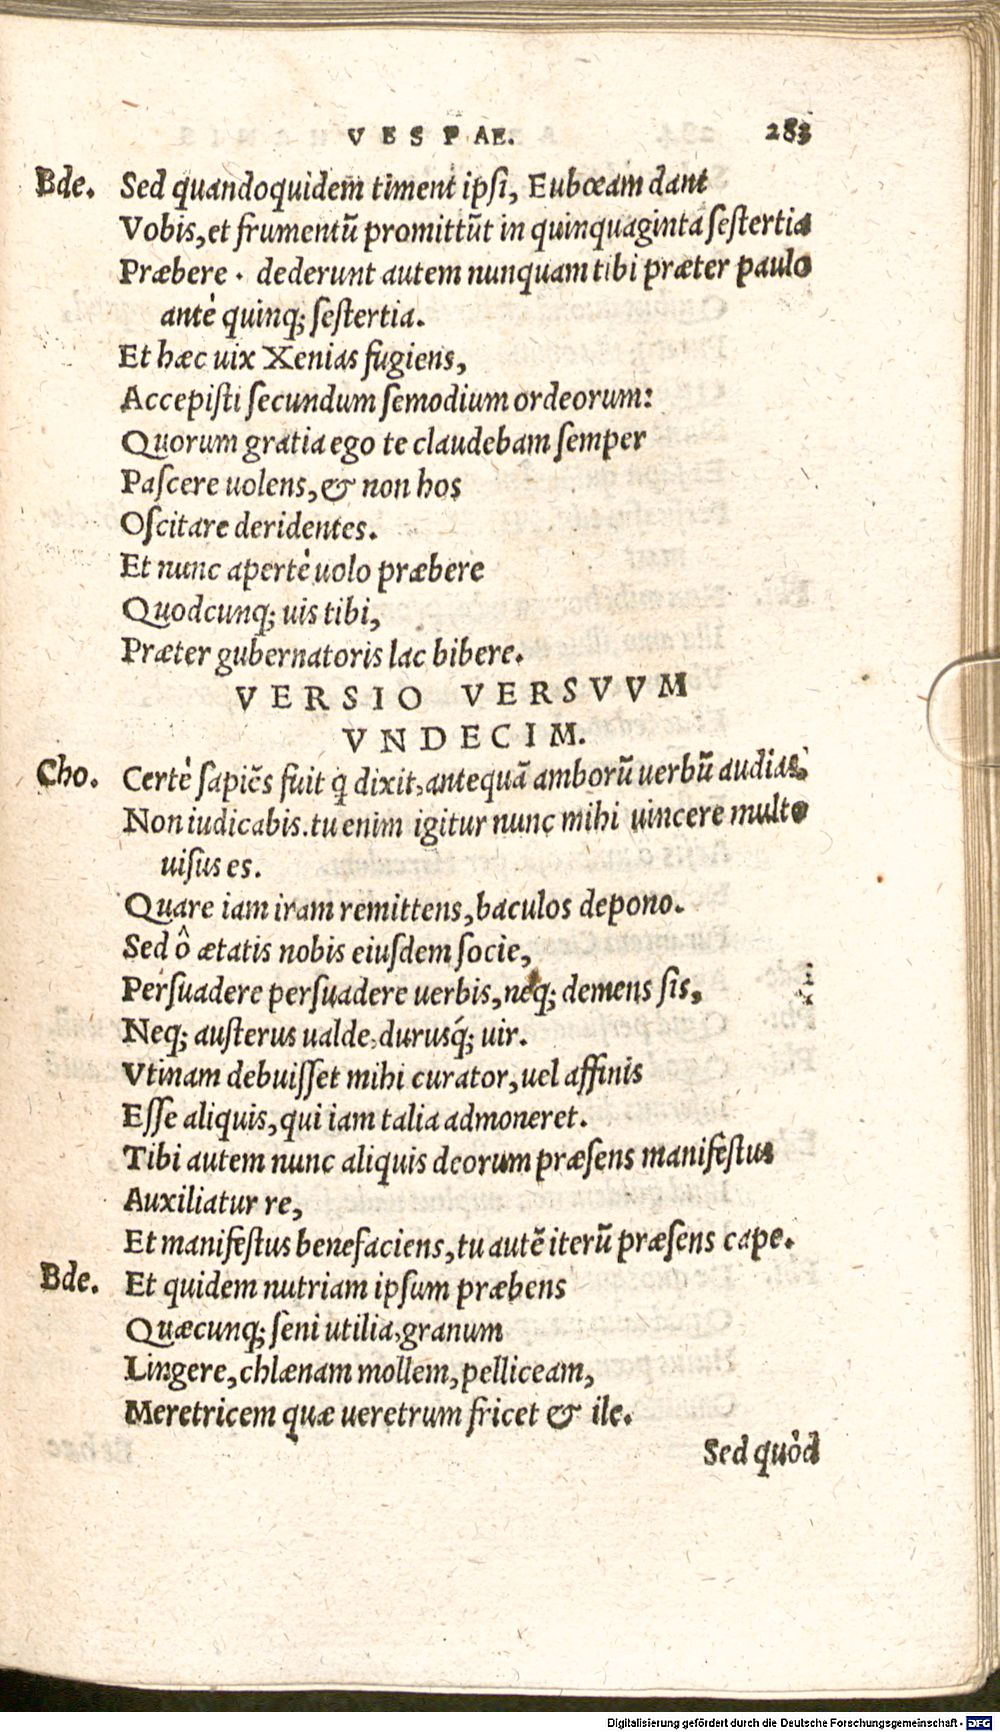 VESPAE. 283
Bde. Sed quandoquidem timent ipsi, Eubœam dant
Vobis, et frumentũ promittũt in quinquaginta sestertia
Præbere. dederunt autem nunquam tibi præter paulo
antè quinq; sestertia.
Et hæc uix Xenias fugiens,
Accepisti secundum semodium ordeorum:
Quorum gratia ego te claudebam semper
Pascere uolens, & non hos
Oscitare deridentes.
Et nunc apertè uolo præbere
Quodcunq; uis tibi,
Præter gubernatoris lac bibere.
VERSIO VERSVVM
VNDECIM.
Cho. Certè sapiẽs fuit q̃ dixit, antequã amborũ uerbũ audias,
Non iudicabis. tu enim igitur nunc mihi uincere multo
uisus es.
Quare iam iram remittens, baculos depono.
Sed ô ætatis nobis eiusdem socie,
Persuadere persuadere uerbis, neq; demens sis,
Neq; austerus ualde, durusq́; uir.
Vtinam debuisset mihi curator, uel affinis
Esse aliquis, qui iam talia admoneret.
Tibi autem nunc aliquis deorum præsens manifestus
Auxiliatur re,
Et manifestus benefaciens, tu autẽ iterũ præsens cape.
Bde. Et quidem nutriam ipsum præbens
Quæcunq; seni utilia, granum
Lingere, chlænam mollem, pelliceam,
Meretricem quæ ueretrum fricet & ile.
Sed quòd
Digitalisierung gefördert durch die Deutsche Forschungsgemeinschaft - DFG